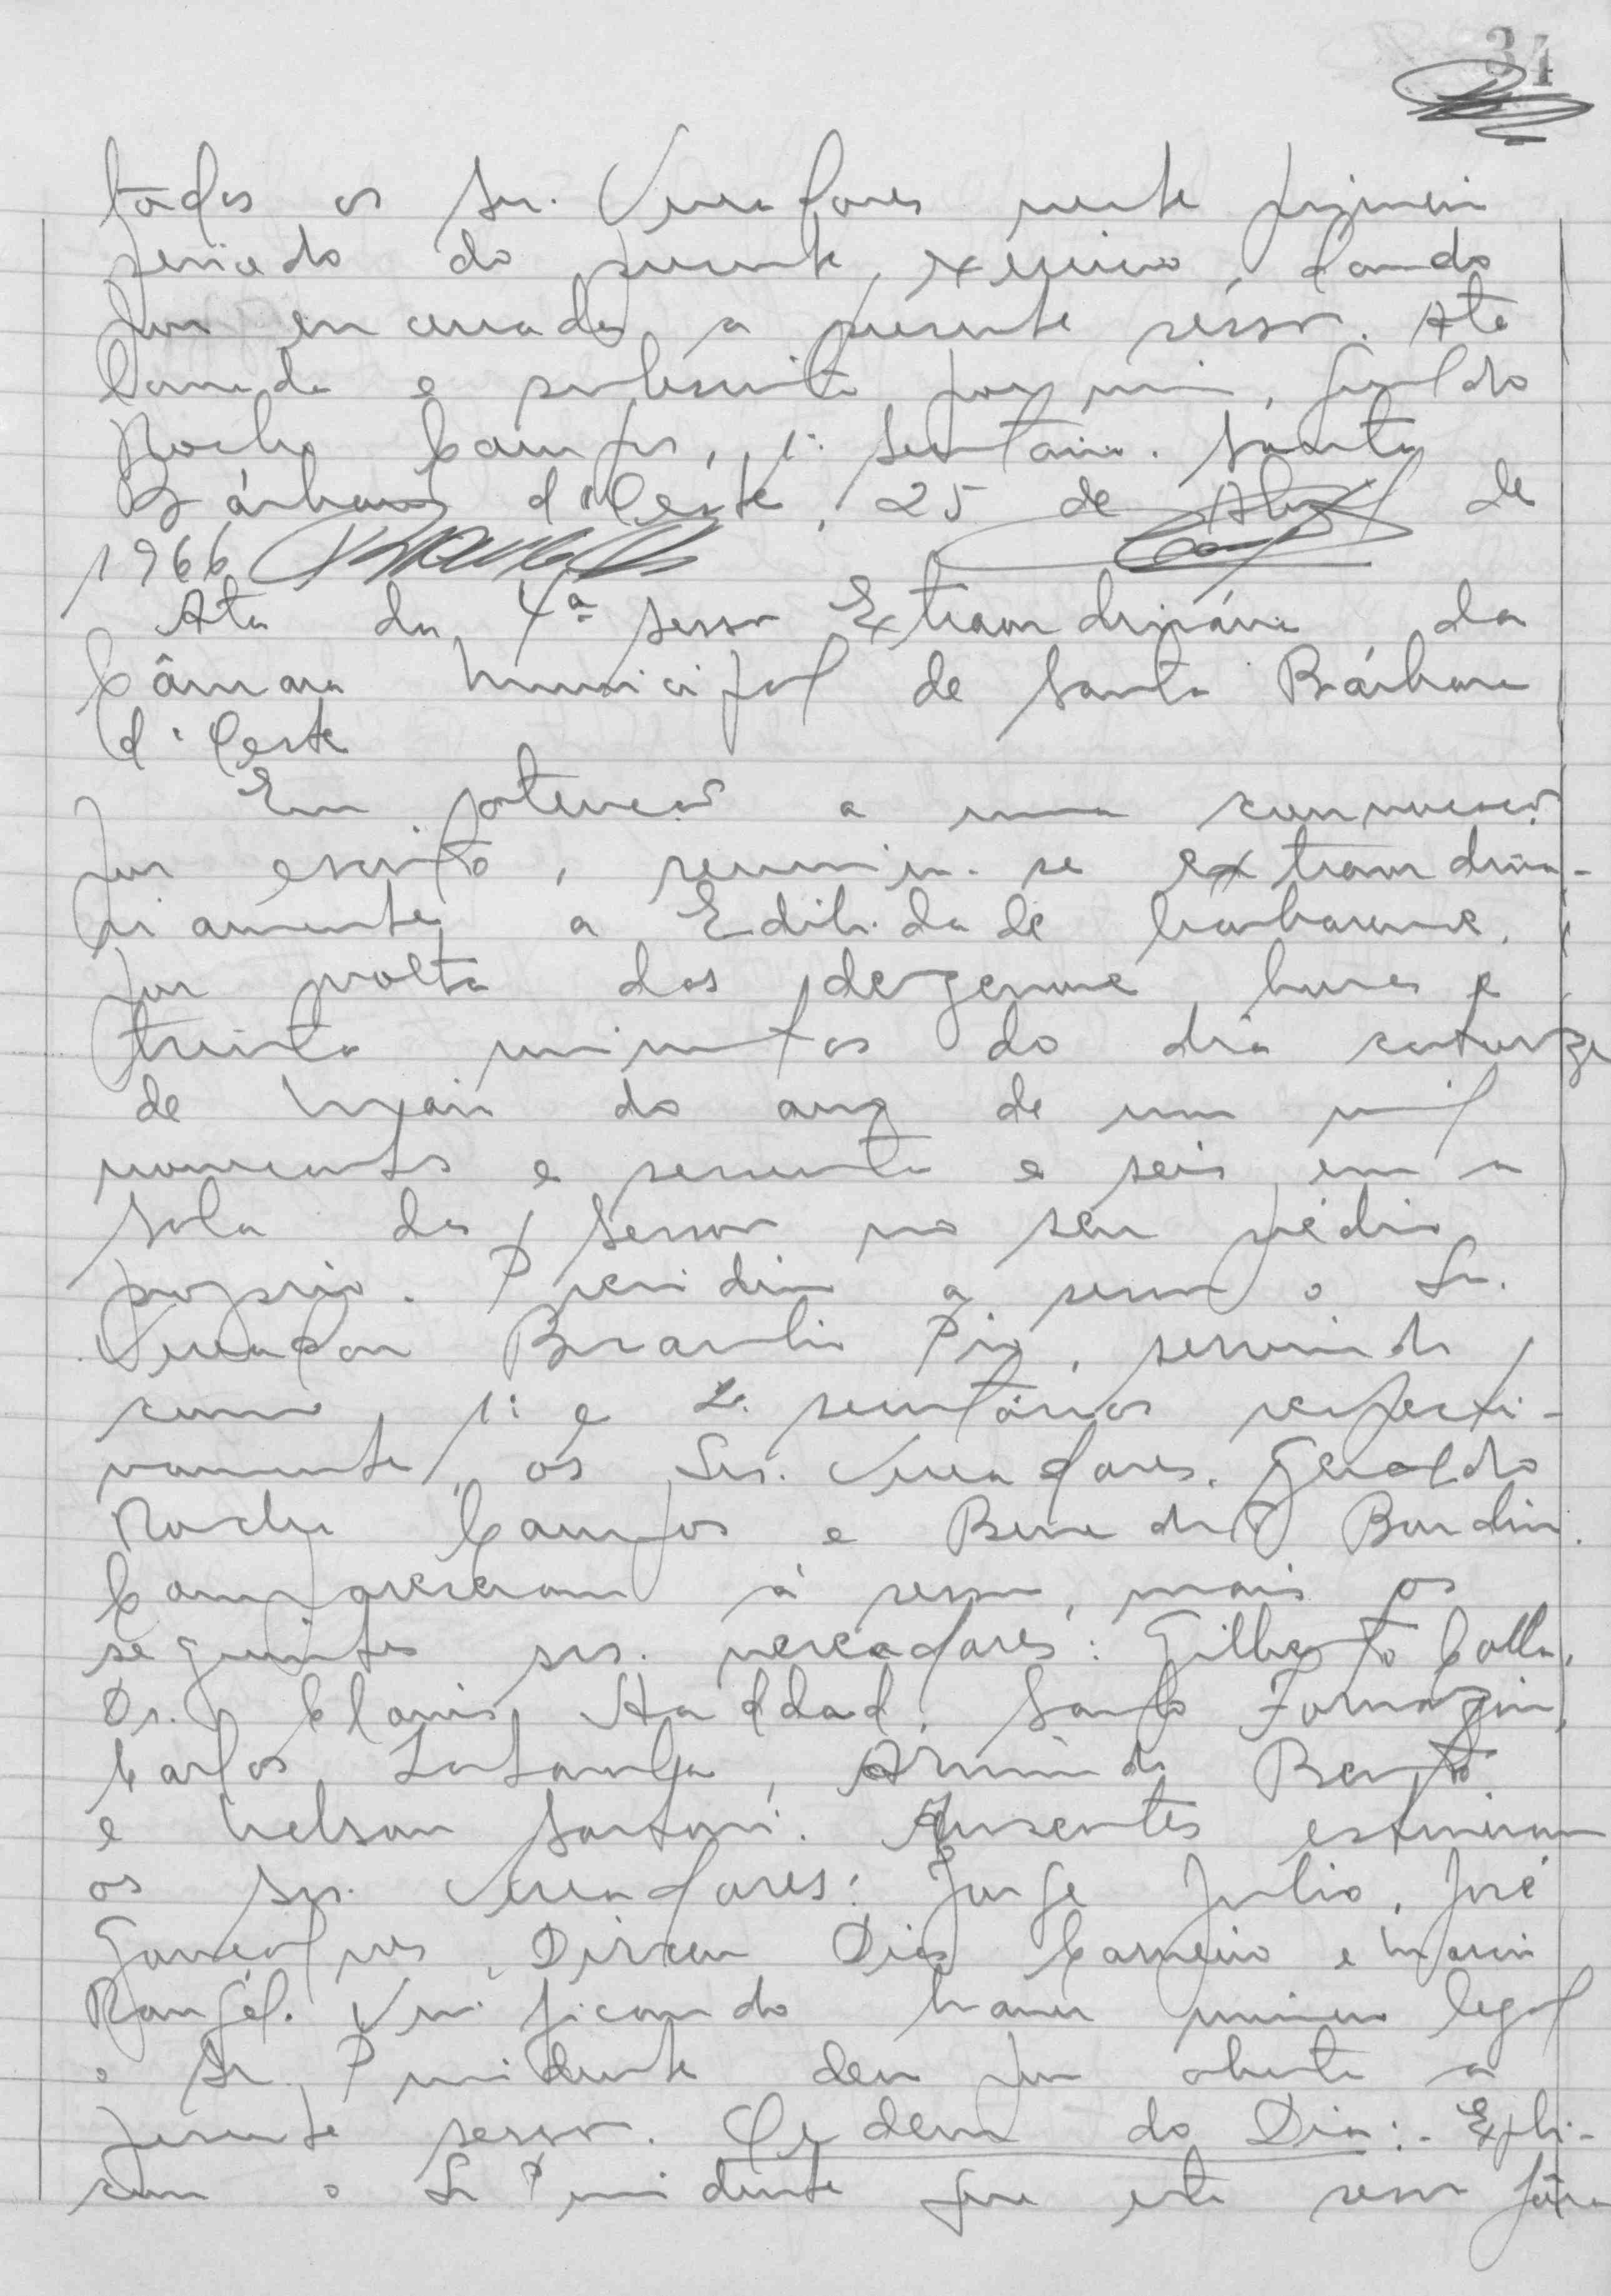 34
todos os Srs. Vereadores neste primeiro
periodo do presente exercicio, dando
por encerrada a presente sessão. Ata
lavrada e subscrita por mim, Geraldo
Rocha Campos, 1º Secretário. Santa
Bárbara d'Oeste, 25 de Abril de
1966
Ata da 4ª Sessão Extraordinária da
Câmara Municipal de Santa Bárbara
d'Oeste
Em atenção a uma convocação
por escrito, reuniu-se extraordina-
riamente a Edilidade barbarense,
por volta das dezenove horas e
trinta minutos do dia catorze
de Maio do ano de um mil
novecentos e sessenta e seis, em a
Sala das Sessões no seu prédio
proprio. Presidiu a sessão o Sr.
Vereador Braulio Pio, servindo
como 1º e 2º secretários respecti-
vamente, os Srs. Vereadores. Geraldo
Rocha Campos e Benedito Bordin.
Compareceram à sessão, mais os
seguintes srs. vereadores: Gilberto Colla,
Dr. Clovis Haddad, Santo Fornazin,
Carlos Armindo Bento
e Nelson Sartori. Ausentes estiveram
os Srs. Vereadores: Jorge Julio, José
Gonçalves, Dirceu Dias Carneiro e Mario
Rangél. Verificando haver número legal
o Sr. Presidente deu por aberta a
presente sessão. Ordem do Dia:- Expli-
cou o Sr Presidente que esta sessão fôra